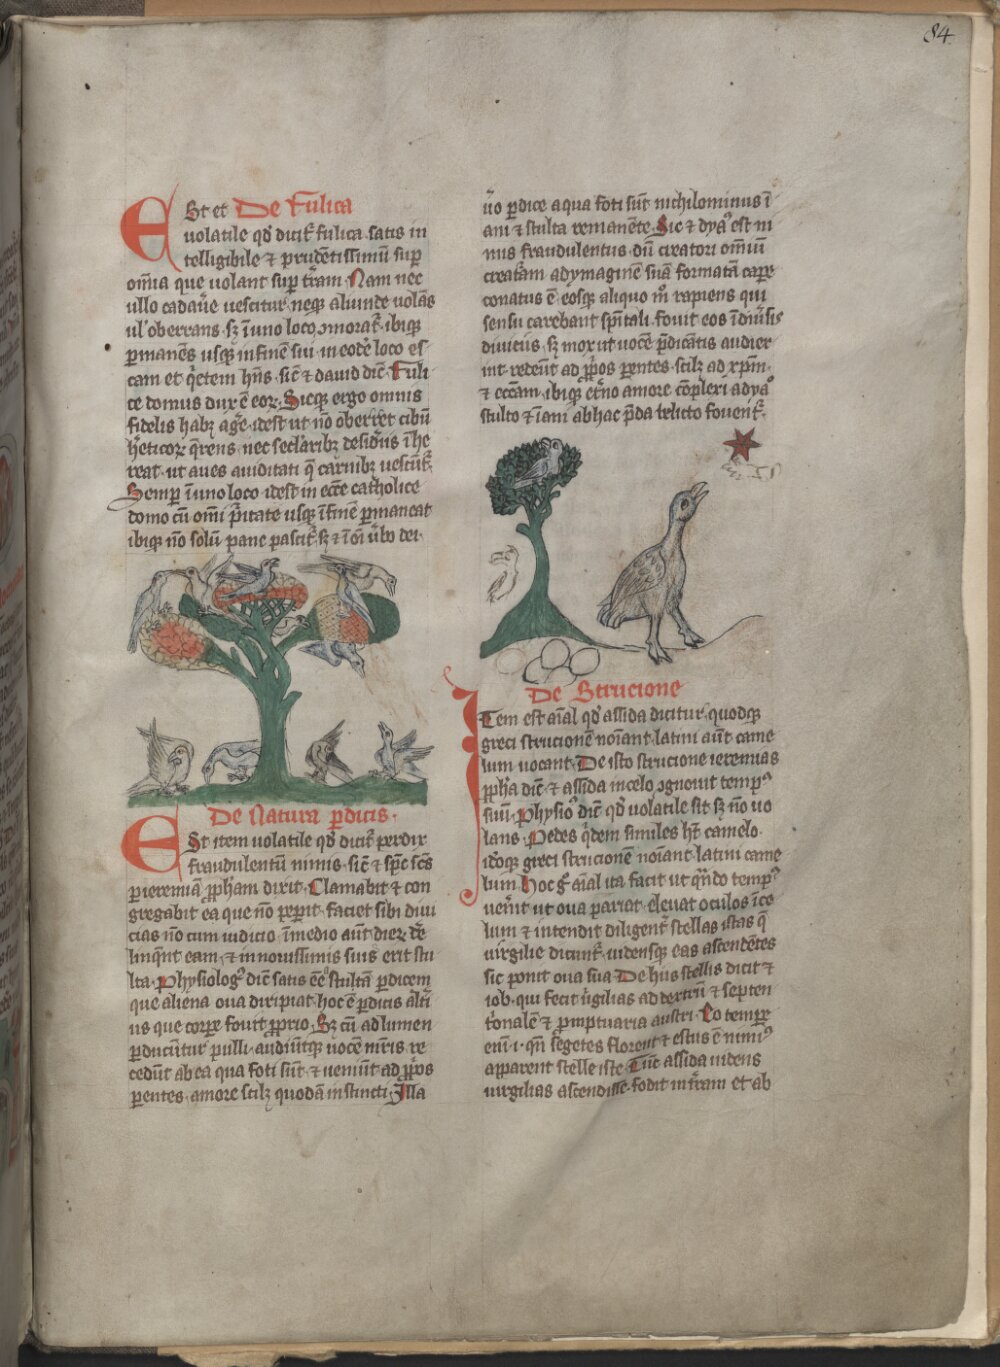 84
De Fulica
Est et
uolatile qd̕ dicit᷑ fulica satis in
telligibile ⁊ prudētissimū sup̱
om̄ia que uolant sup̱ t̄ram Nam nec
ullo cadau̕e uescitur neq̨ aliunde uolās
ul' oberrans sꝫ ī uno loco ꝯmorat᷑ ibiq̨
ꝑmanēs usq̨ in finē sui in eodē loco es
cam et q̕etem hn̄s sic̄ ⁊ dauid dic̄ Fuli
ce domus dux ē eoꝝ Sicq̨ ergo omnis
fidelis habꝫ ag̕e idest ut nō oberret cibū
h̕eticoꝝ q̄rens nec seclaribꝫ desid̕iis īhe
reat ut aues auiditati q̄ carnibꝫ uescūt᷑
Semꝑ ī uno loco idest in ecc̄e catholice
domo cū om̄i p̄itate usq̨ ī finē ꝑmaneat
ibiq̨ nō solū pane pascit᷑ sꝫ ⁊ ī om̄i u̕bo dei
De Natura ꝑdicis
Est item uolatile qd̕ dicit᷑ perdix
fraudulentū nimis sic̄ ⁊ sp̄c sc̄s
ꝑ ieremiam ꝓph̄am dixit Clamabit ⁊ con
gregabit ea que nō peꝑit faciet sibi diui
cias nō cum iudicio ī medio aūt dieꝝ de̕
linquent eam ⁊ in nouissimis suis erit stu
lta Physiolog᷒ dic̄ satis eē stultā ꝑdicem
que aliena oua diripiat hoc ē ꝑdicis alt̕i
us que corꝑe fouit ꝓprio Sꝫ cū ad lumen
ꝑducūtur pulli audiūtq̨ uocē mr̄is re
cedūt ab ea qua foti sūt ⁊ ueniūt ad ꝓp̄os
ꝑentes amore scilꝫ quodā instincti Illa
u̕o ꝑdice a qua foti sūt nichilominus ī
ani ⁊ stulta remanēte Sic ⁊ dya᷒ est ni
mis fraudulentus dū creatori om̄iū
creat̕am ad ymaginē suā formatā caꝑe
conatus ē eosq̨ aliquo m̊ rapiens qui
sensu carebant spīritali fouit eos ī diu̕sis
diuiciis sꝫ mox ut uocē p̄dicātis audier
int redeūt ad ꝓp̄os ꝑentes scilꝫ ad xp̄m
⁊ ecc̄am ibiq̨ et̕no amore cōpleri a dya᷒
stulto ⁊ īani ab hac p̄da relicto fouent᷑
De Strucione
Item est aīal qd̕ assida dicitur quodq̨
greci strucionē noīant latini aūt came
lum uocant De isto strucione ieremias
ꝓph̄a dic̄ ⁊ assida in celo ꝯgnouit temp᷒
suū Physio᷒ dic̄ qd̕ uolatile sit sꝫ nō uo
lans Pedes q̕dem similes hn̄t camelo
id̊q̨ greci strucionē noīant latini came
lum Hoc g̊ aīal ita facit ut qn̄do temp᷒
uen̕it ut oua pariat eleuat oculos ī ce
lum ⁊ intendit diligent̕ stellas istas q̄
uirgilie dicunt᷑ uidensq̨ eas ascendētes
sic ponit oua sua De hiis stellis dicit ⁊
iob qui fecit u̕gilias ad dextrū ⁊ septen
t̊onalē ⁊ ꝓmptuaria austri Eo tempꝑe
eni̅ i qn̄ segetes florent ⁊ estus ē nimi᷒
apparent stelle iste Tūc assida uidens
uirgilias ascendisse fodit in t̄ram et ab